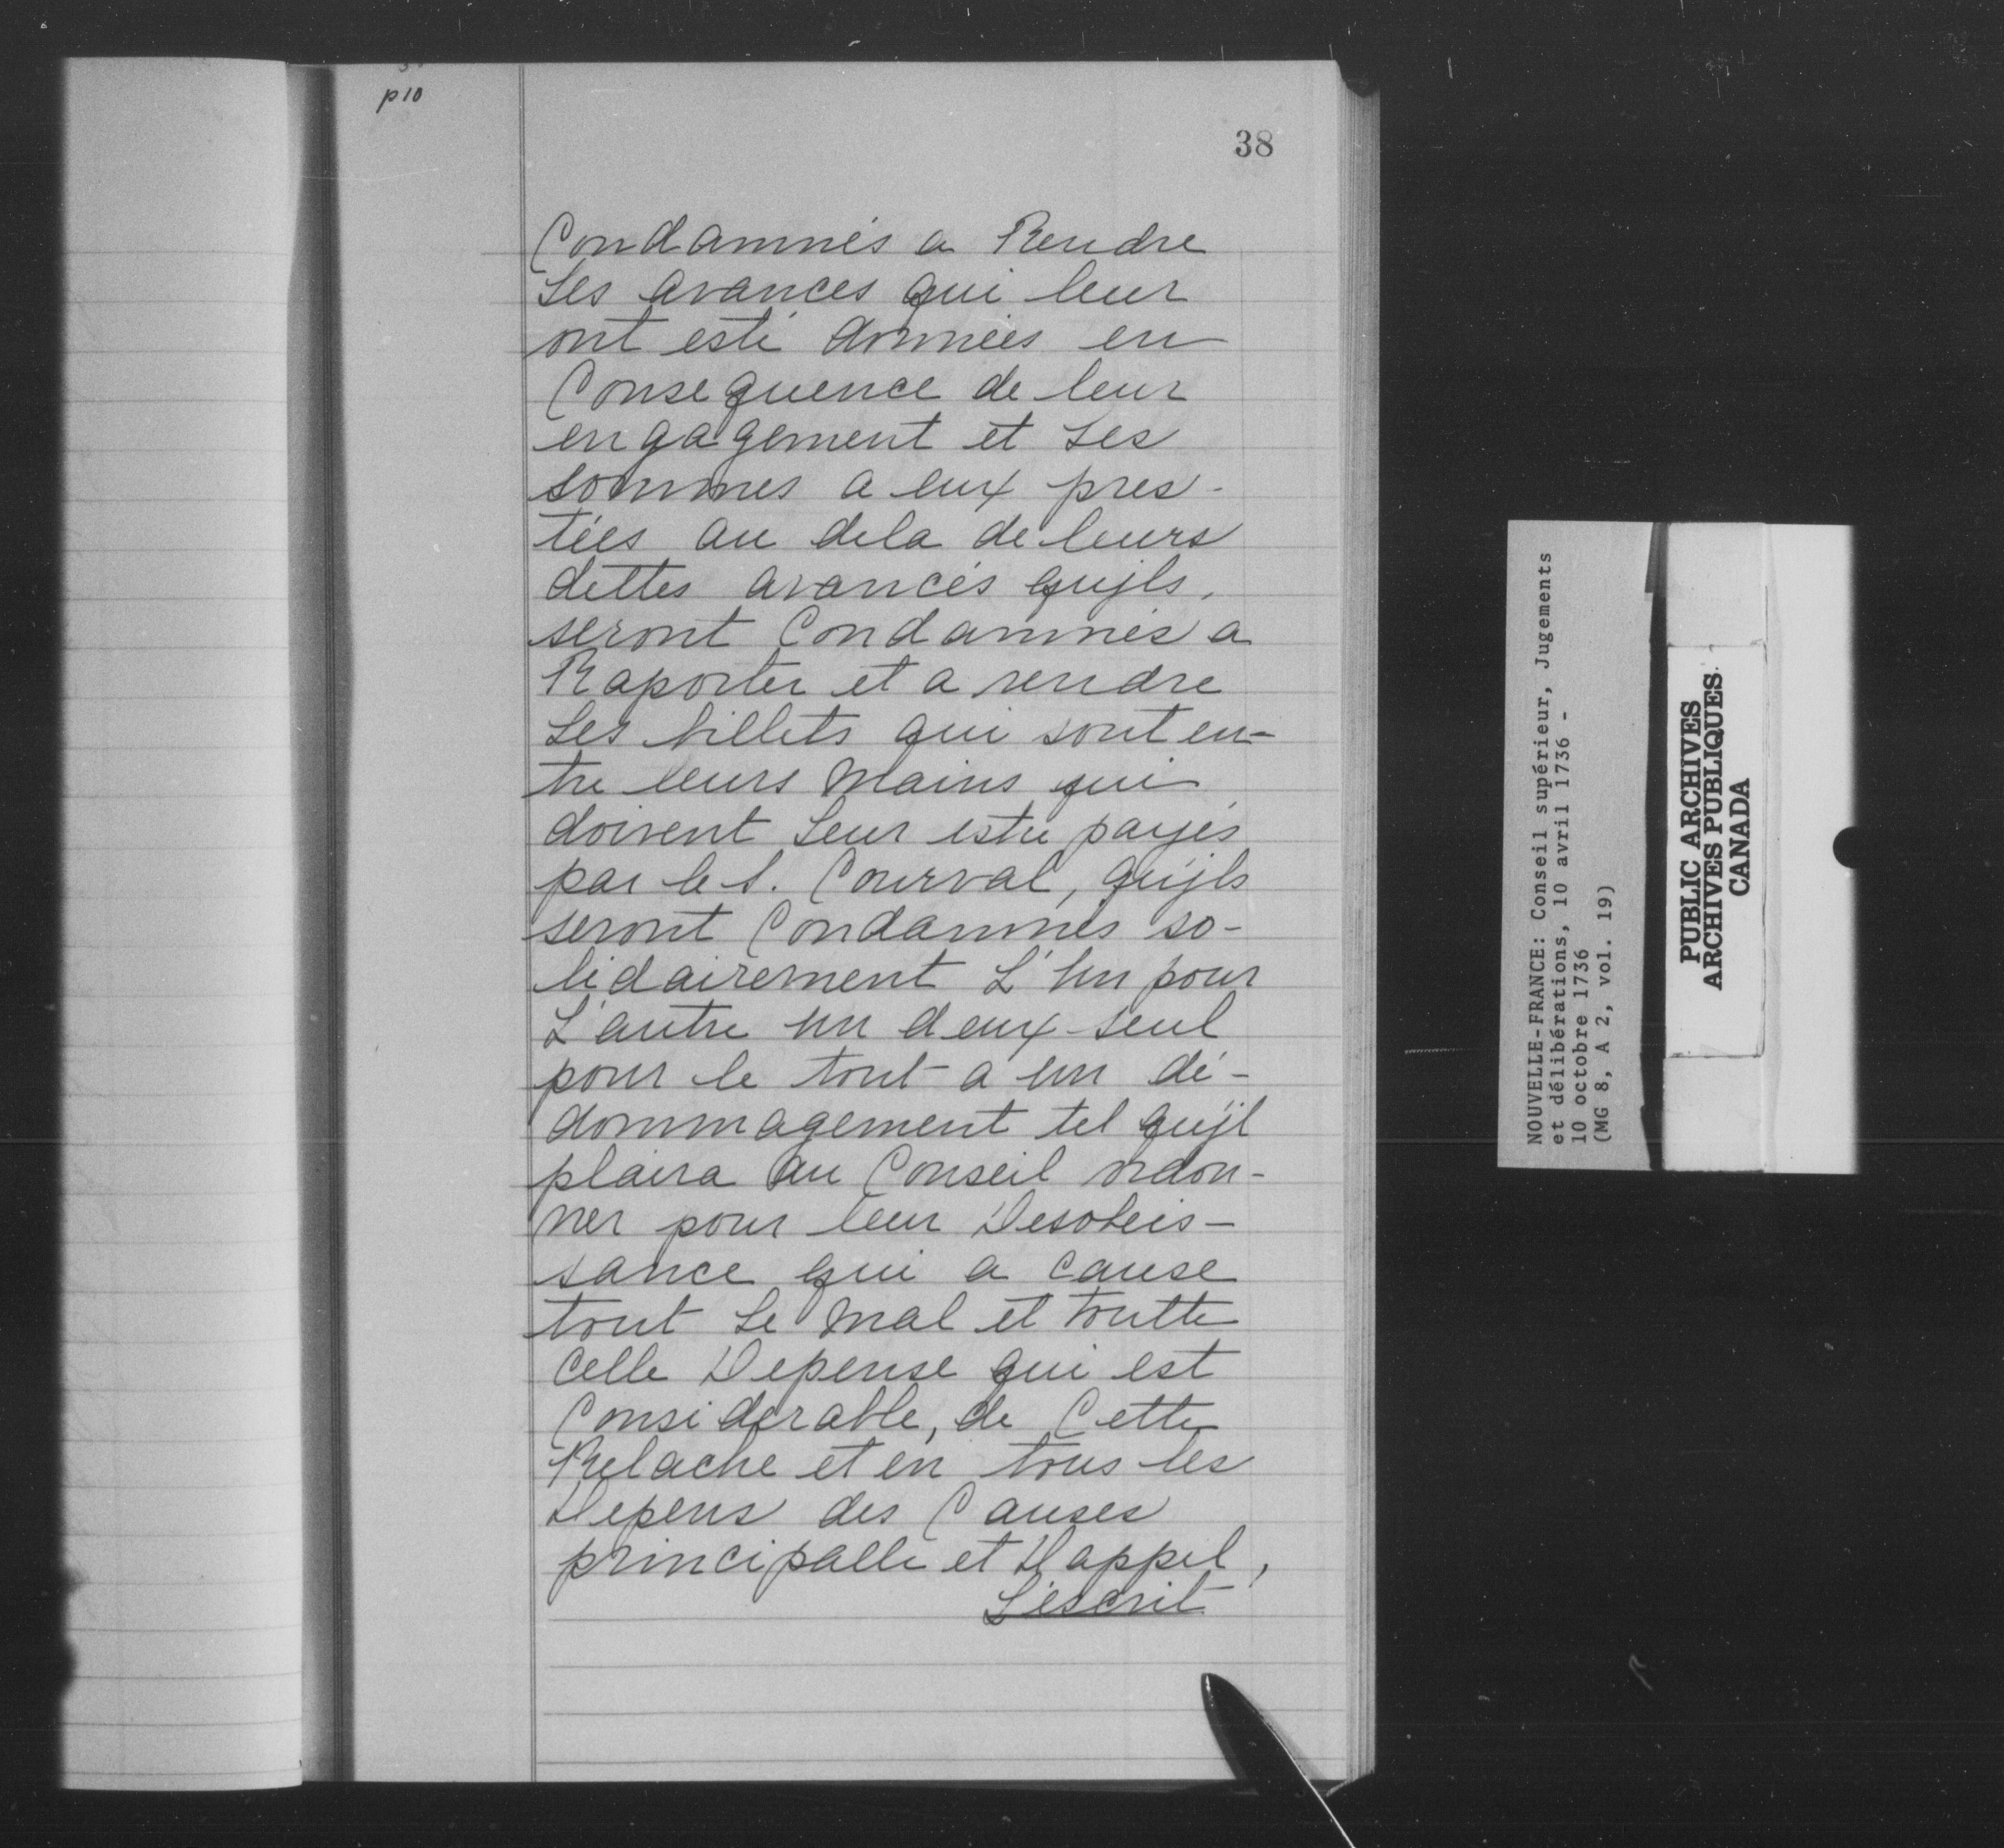 p10
38
Condamnés a Rendre
Les avances qui leur
ont esté données en
Consequence de leur
engagement et Les
sommes a eux pres-
tées au dela de leurs
dettes avancés qujls,
seront Condamnés a
Raporter et a rendre
Les billets qui sont en-
tre leurs Mains qui
doivent Leur estre payés
par le S. Courval, qu'jls
seront Condamnés so-
lidairement L'un pour
L'autre un deux seul
pour le tout a un dé-
dommagement tel qu'jl
plaira au Conseil ordon-
ner pour leur Desobeis-
sance qui a cause
tout Le Mal et toutte
celle Depense qui est
Considerable, de Cette
Relache et en tous les
Depens des Causes
principalle et D'appel,
L'escrit
NOUVELLE-FRANCE: Conseil supérieur, Jugements
et délibérations, 10 avril 1736 -
10 octobre 1736
(MG 8, A 2, vol. 19)
PUBLIC ARCHIVES
ARCHIVES PUBLIQUES
CANADA